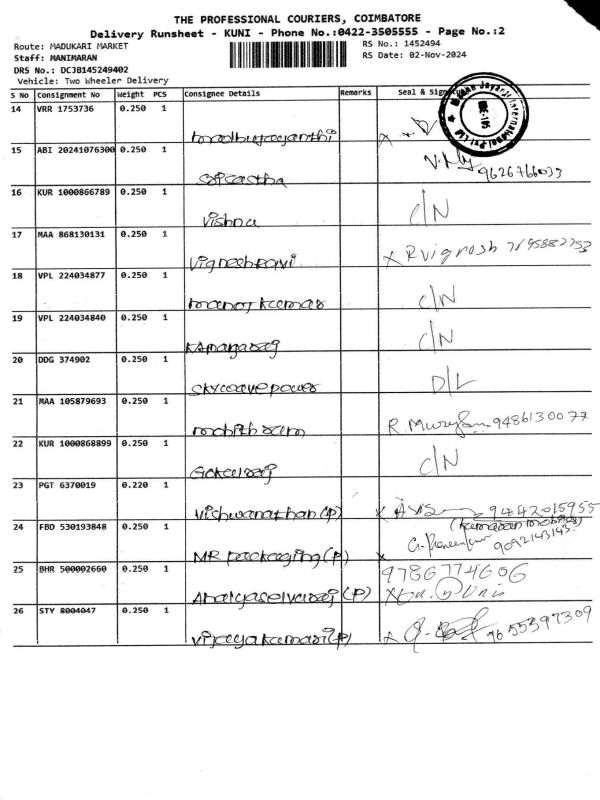 THE PROFESSIONAL COURIERS, COIMBATORE
Delivery Runsheet - KUNI - Phone No.:0422-3505555 - Page No.:2
Route: MADUKARI MARKET RS No.: 1452494
Staff: MANIMARAN RS Date: 02-Nov-2024
DRS No.: DCJB145249402
Vehicle: Two Wheeler Delivery
S No Consignment No Weight PCS Consignee Details Remarks Seal &
14 VRR 1753736 0.250 1
madhujayanthi
15 ABI 20241076300 0.250 1
9626766033
16 KUR 1000866789 0.250 1 C/N
Vishna
17 MAA 868130131 0.250 1 X R Vignosh
Vigneshravi
18 VPL 224034877 0.250 1 C/N
manoj kumar
19 VPL 224034840 0.250 1 C/N
Kamararaj
20 DDG 374902 0.250 1 D/L
Skywavepower
21 MAA 105879693 0.250 1 9486130077
mohith ram
22 KUR 1000868899 0.250 1 C/N
Gokulraj
23 PGT 6370019 0.220 1
Vishwanathan (P) 9442015955
24 FBD 530193848 0.250 1 9092143143
MR packaging (P)
25 BHR 500002660 0.250 1 9786774606
(P)
26 STY 8004047 0.250 1 9655397309
Vijayakumari (P)